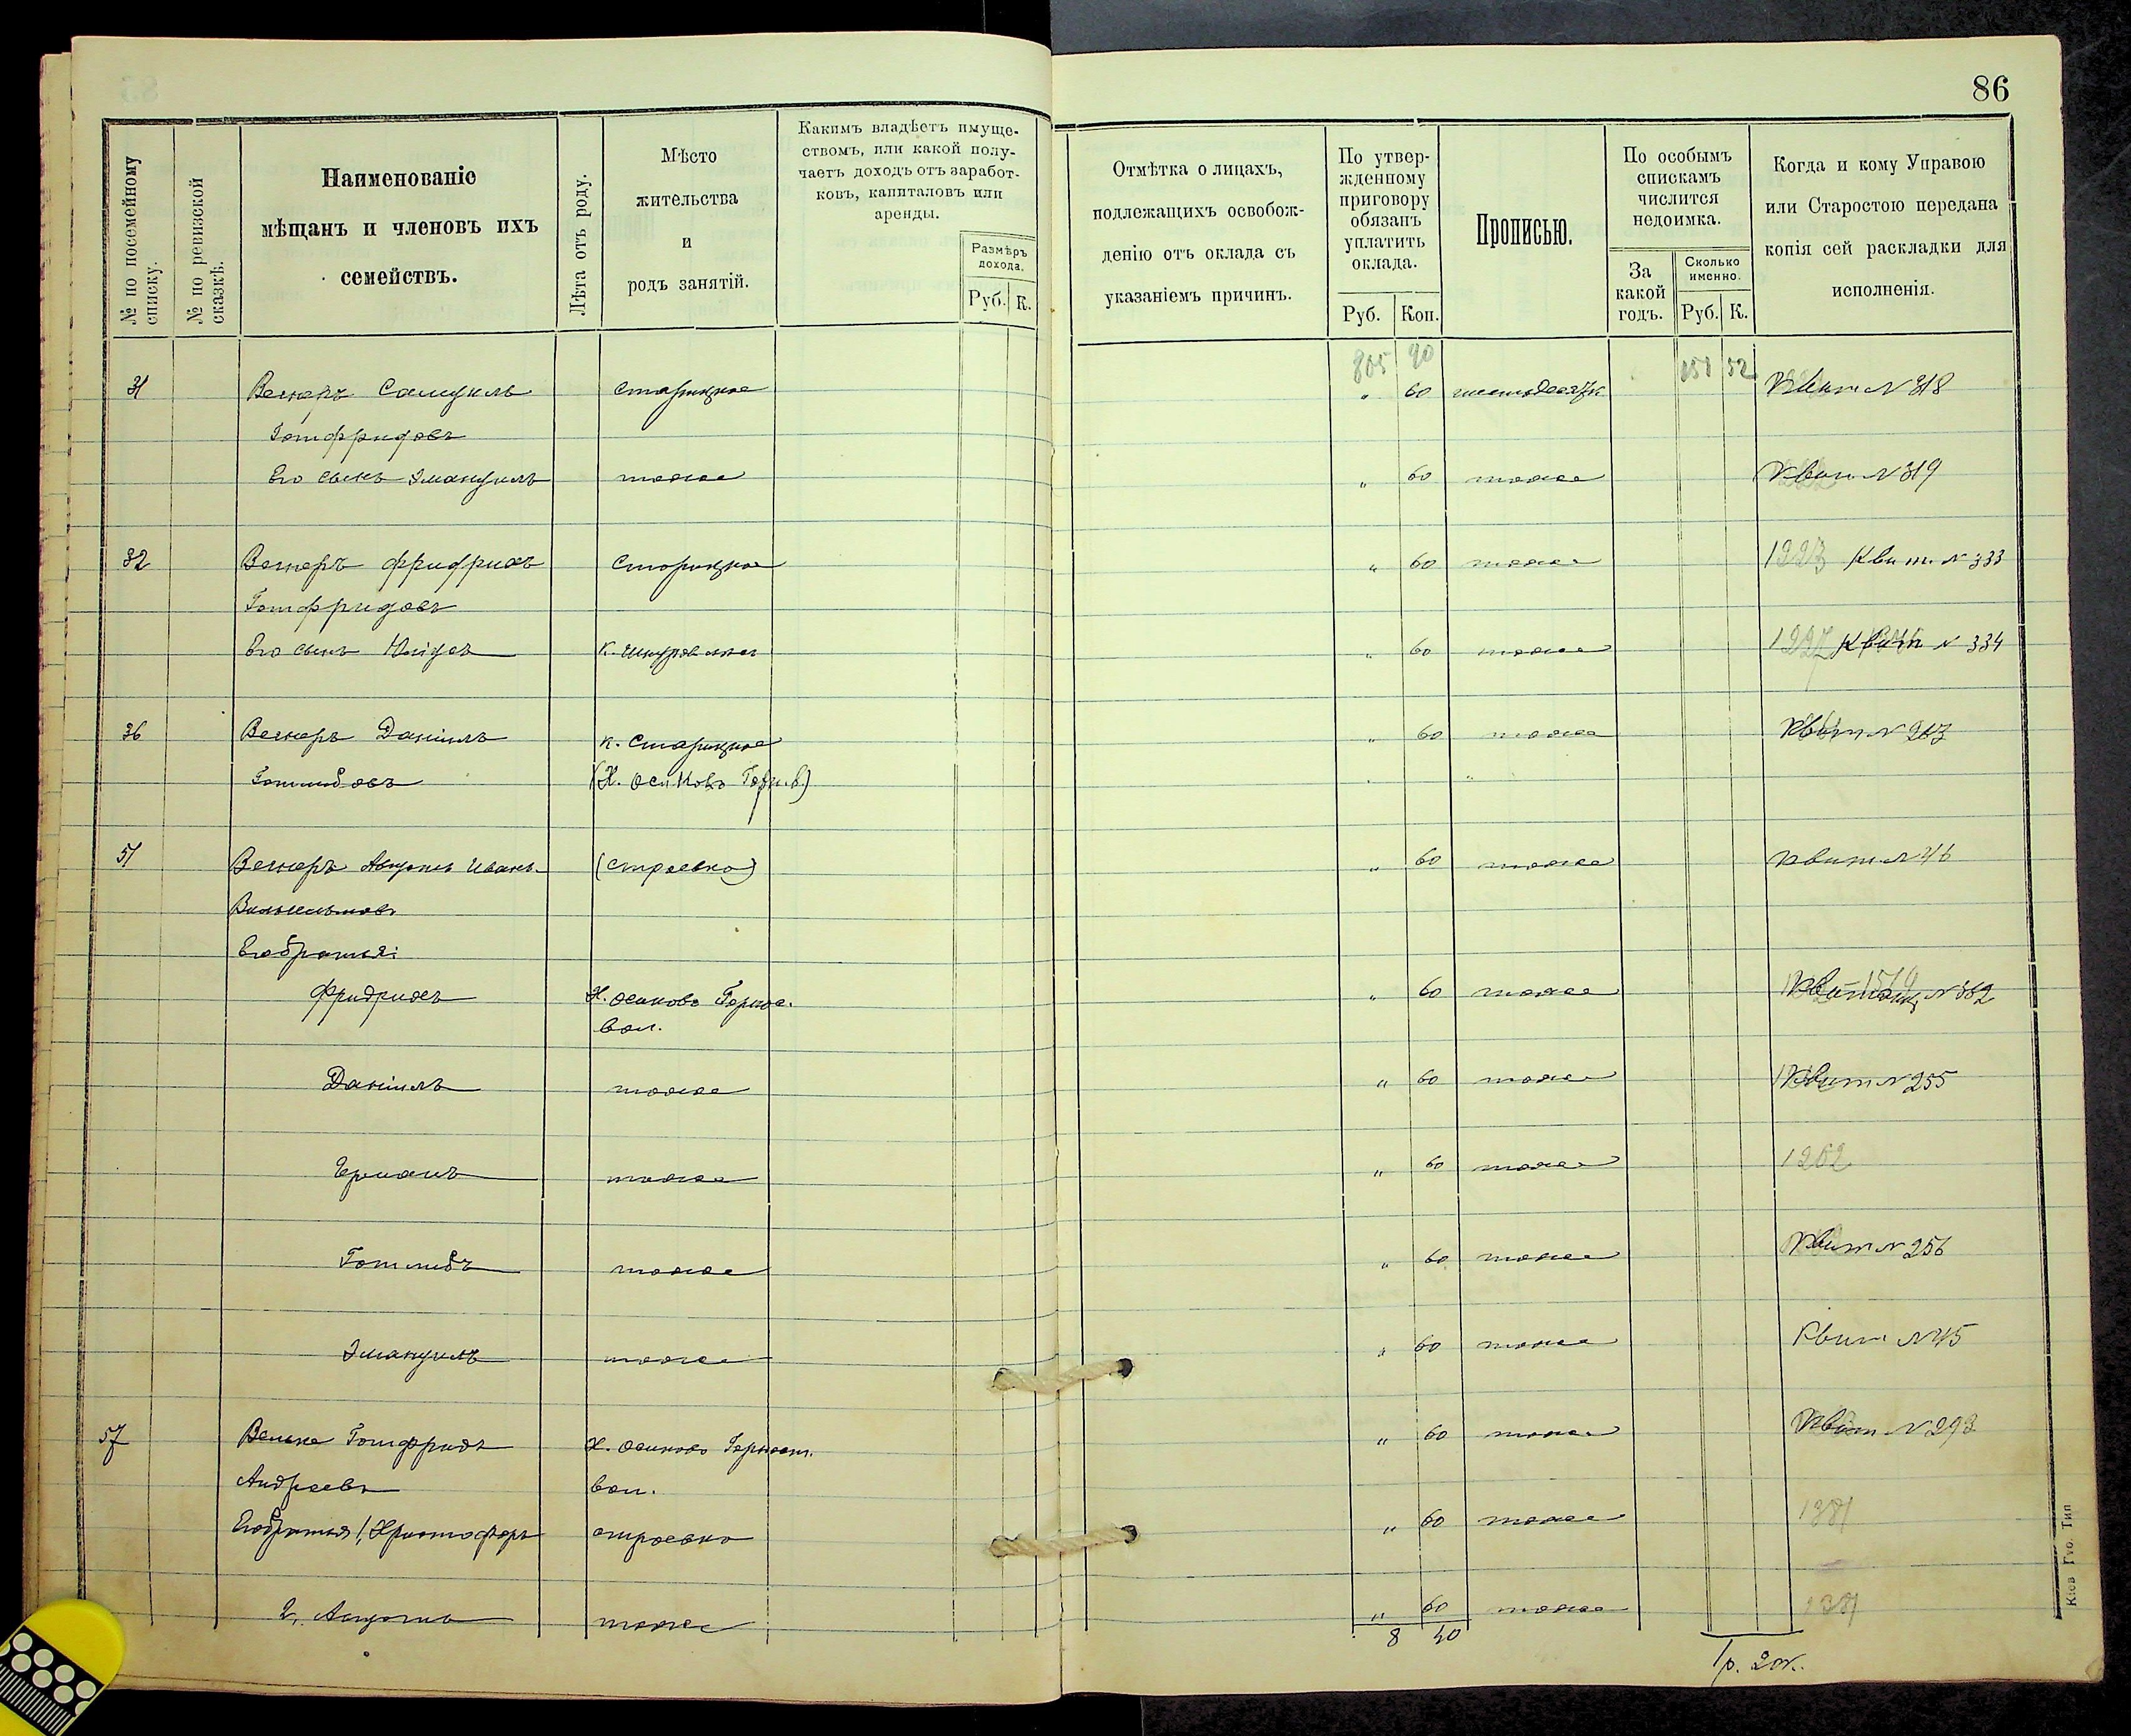 86
№ по посемейному списку.
№ по ревизской сказкѣ.
Наименованіе
мѣщанъ и членовъ ихъ
семействъ.
Лѣта отъ роду.
Мѣсто
жительства
и
родъ занятій.
Какимъ владѣетъ имуще-
ствомъ, или какой полу-
чаетъ доходъ отъ заработ-
ковъ, капиталовъ или
аренды.
Размѣръ
дохода.
Руб. К.
Отмѣтка о лицахъ,
подлежащихъ освобож-
денію отъ оклада съ
указаніемъ причинъ.
По утвер-
жденному
приговору
обязанъ
уплатить
оклада.
Руб. Коп.
Прописью.
По особымъ
спискамъ
числится
недоимка.
За
какой
годъ.
Сколько
именно.
Руб. К.
Когда и кому Управою
или Старостою передана
копія сей раскладки для
исполненія.
805 90 151 52
31 Вегнеръ Самуилъ Старицкое " 60 шестьдесятк Квит N 318
Готфридовъ
Его сынъ Эмануилъ тоже " 60 тоже Квит N 319
32 Вегнеръ Фридрихъ Старицкое " 60 тоже 1223 Квит. N 333
Готфридовъ
Его сынъ к. " 60 тоже 1227 Квит N 334
36 Вегнеръ Даніилъ к. Старицкое " 60 тоже Квит N
Готлибовъ (К. Осиково)
51 Вегнеръ Августъ Иванъ- (Строевка) " 60 тоже Квит N 46
Вильгельмовъ
Его братья:
Фридрихъ К. Осиково Горност. " 60 тоже N 382
вол.
Даніилъ тоже " 60 тоже Квит N 255
Германъ тоже " 60 тоже 1262
Готлибъ тоже " 60 тоже Квит N 256
Эмануилъ тоже " 60 тоже Квит N 45
57 Вельке Готфридъ К. Осиково Горност. " 60 тоже Квит N 293
Андреевъ вол.
Его братья 1, Христофоръ Строевка " 60 тоже 1381
2, Августъ тоже " 60 тоже 1381
8 40
1р. 20к.
Кіев Губ. Тип